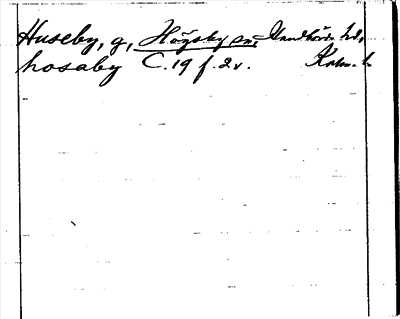 Huseby, g, Högsby sn, Handbörds hd,
hosaby C.19 f.2v. Kalm. l.